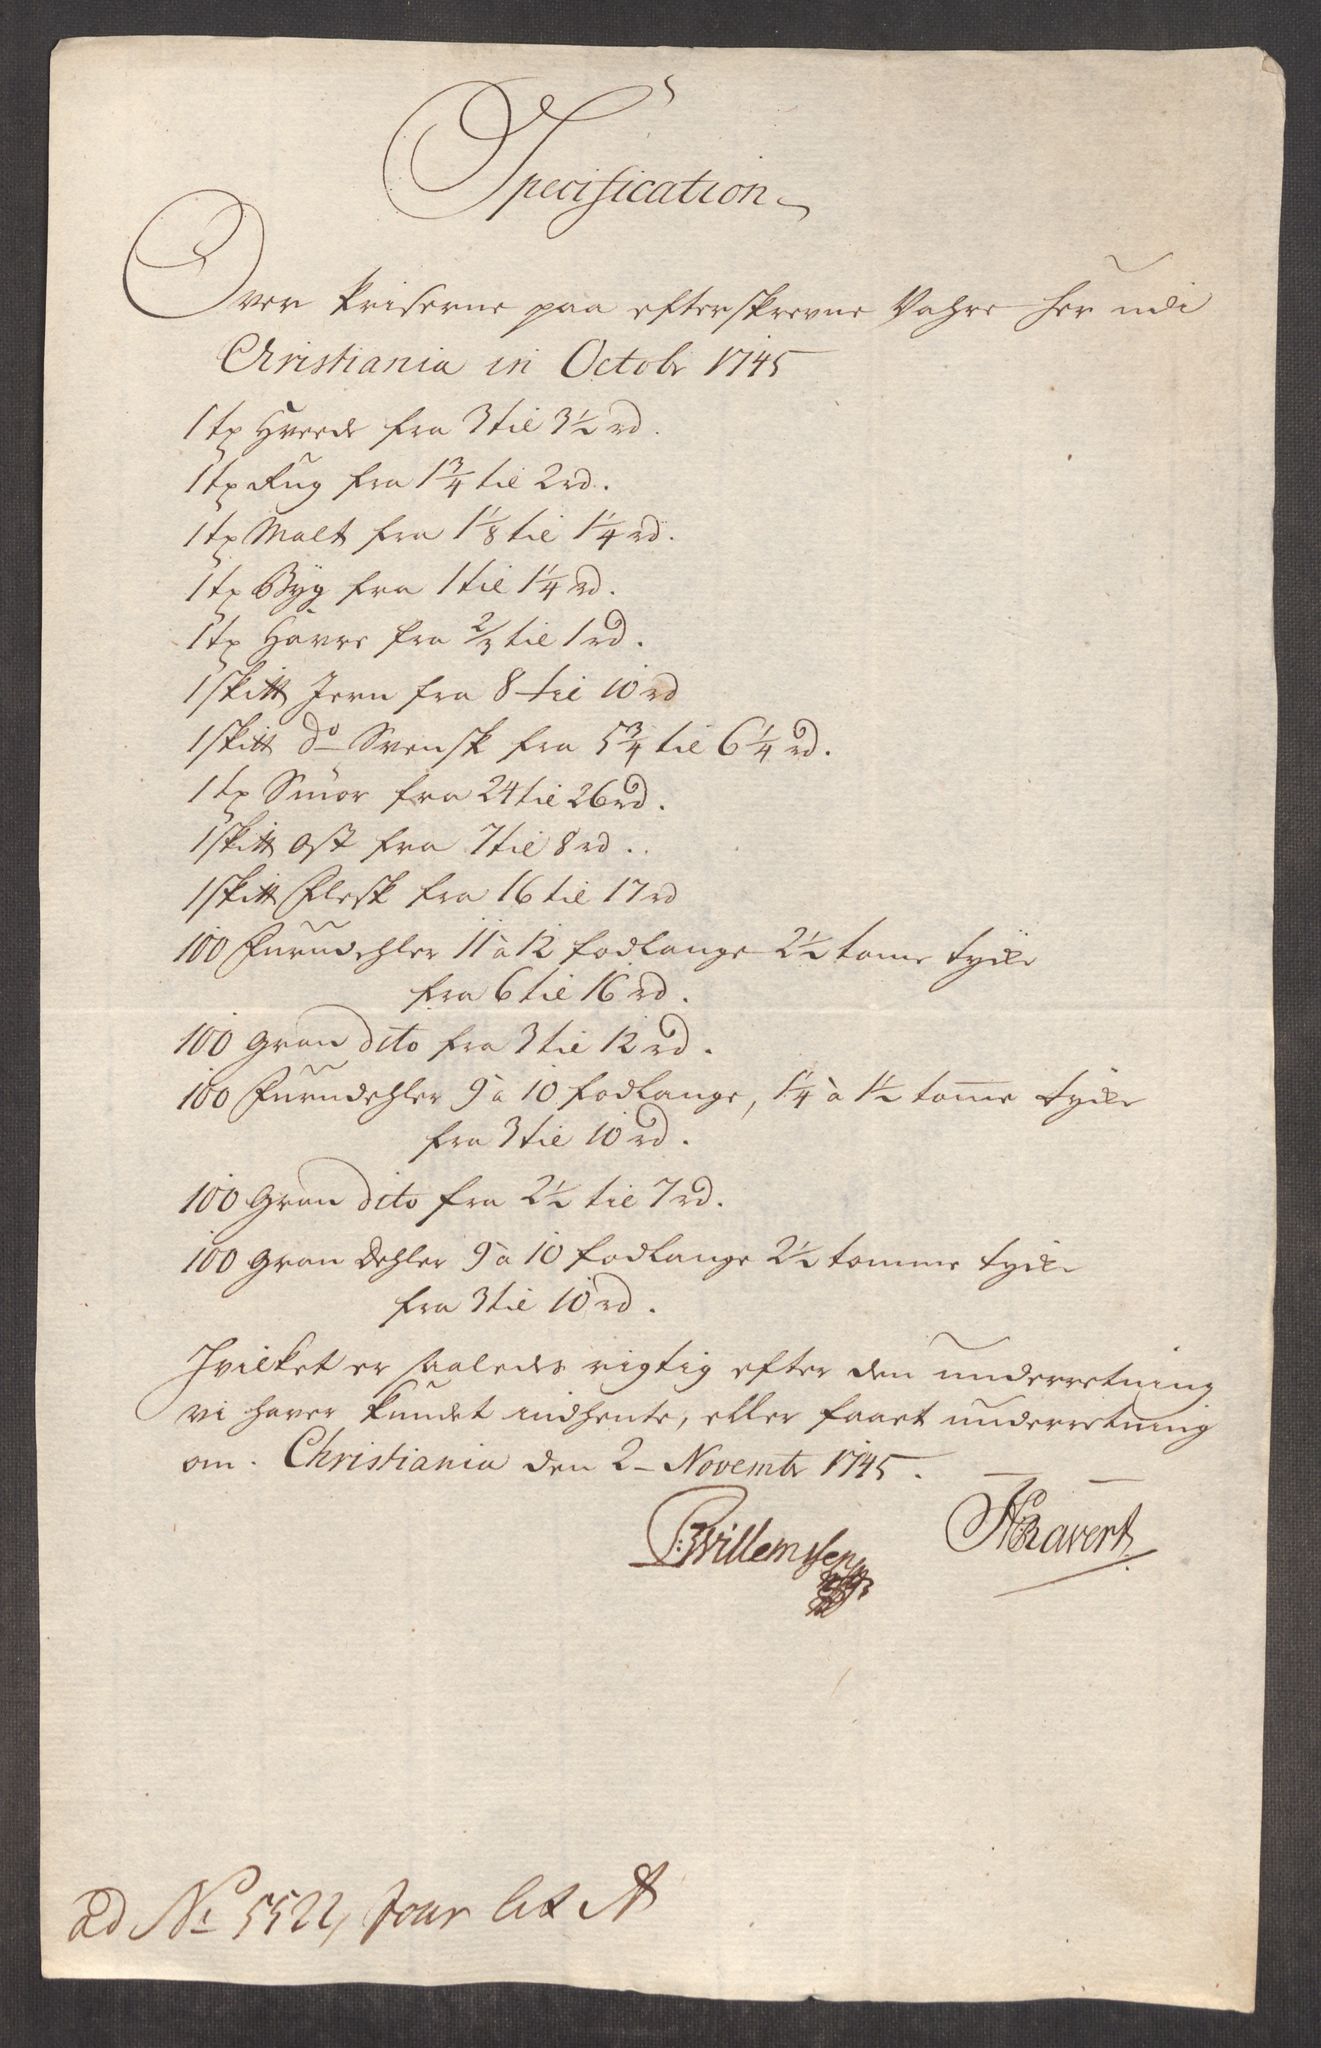 Specification
Over Priserne paa efterskrevne Vahre her udi
Christiania in Octobr 1745
1 tø Hveede fra 3 til 3½ rd.
1 tø Rug fra 1¾ til 2 rd.
1 tø Malt fra 1⅛ til 1¼ rd.
1 tø Byg fra 1 til 1¼ rd.
1 tø Havre fra ⅔ til 1 rd.
1 sk℔ Jern fra 8 til 10 rd
1 sk℔ do Svensk fra 5¾ til 6¼ rd.
1 tø Smør fra 24 til 26 rd.
1 sk℔ Ost fra 7 til 8 rd.
1 sk℔ Flesk fra 16 til 17 rd
100 Furudehler 11 à 12 fodlange 2½ tome tycke
fra 6 til 16 rd.
100 Gran dito fra 3 til 12 rd.
100 Furudehler 9 à 10 fodlange, 1¼ à 1½ tomme tycke
fra 3 til 10 rd.
100 Gran dito fra 2½ til 7 rd.
100 Gran Dehler 9 à 10 fodlange 2½ tomme tycke
fra 3 til 10 rd.
Hvilket er saaledes rigtig efter den underretning
vi haver kundet indhente, eller faaet underretning
om. Christiania den 2 - Novembr 1745.
P:Willemssen
HRavert
ad No 5522, Jour lit A